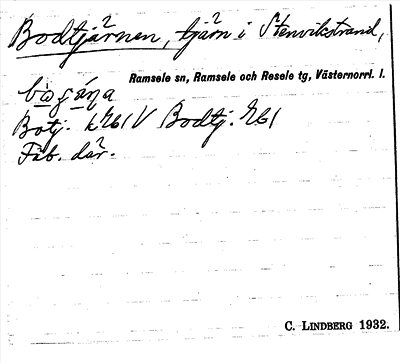 Bodtjärnen, tjärn i Stenvikstrand,
Ramsele sn, Ramsele och Resele tg, Västernorrl. l.
Botj. k Eb1 V Bodtj. Eb1
Fäb. där.
C. LINDBERG 1932.